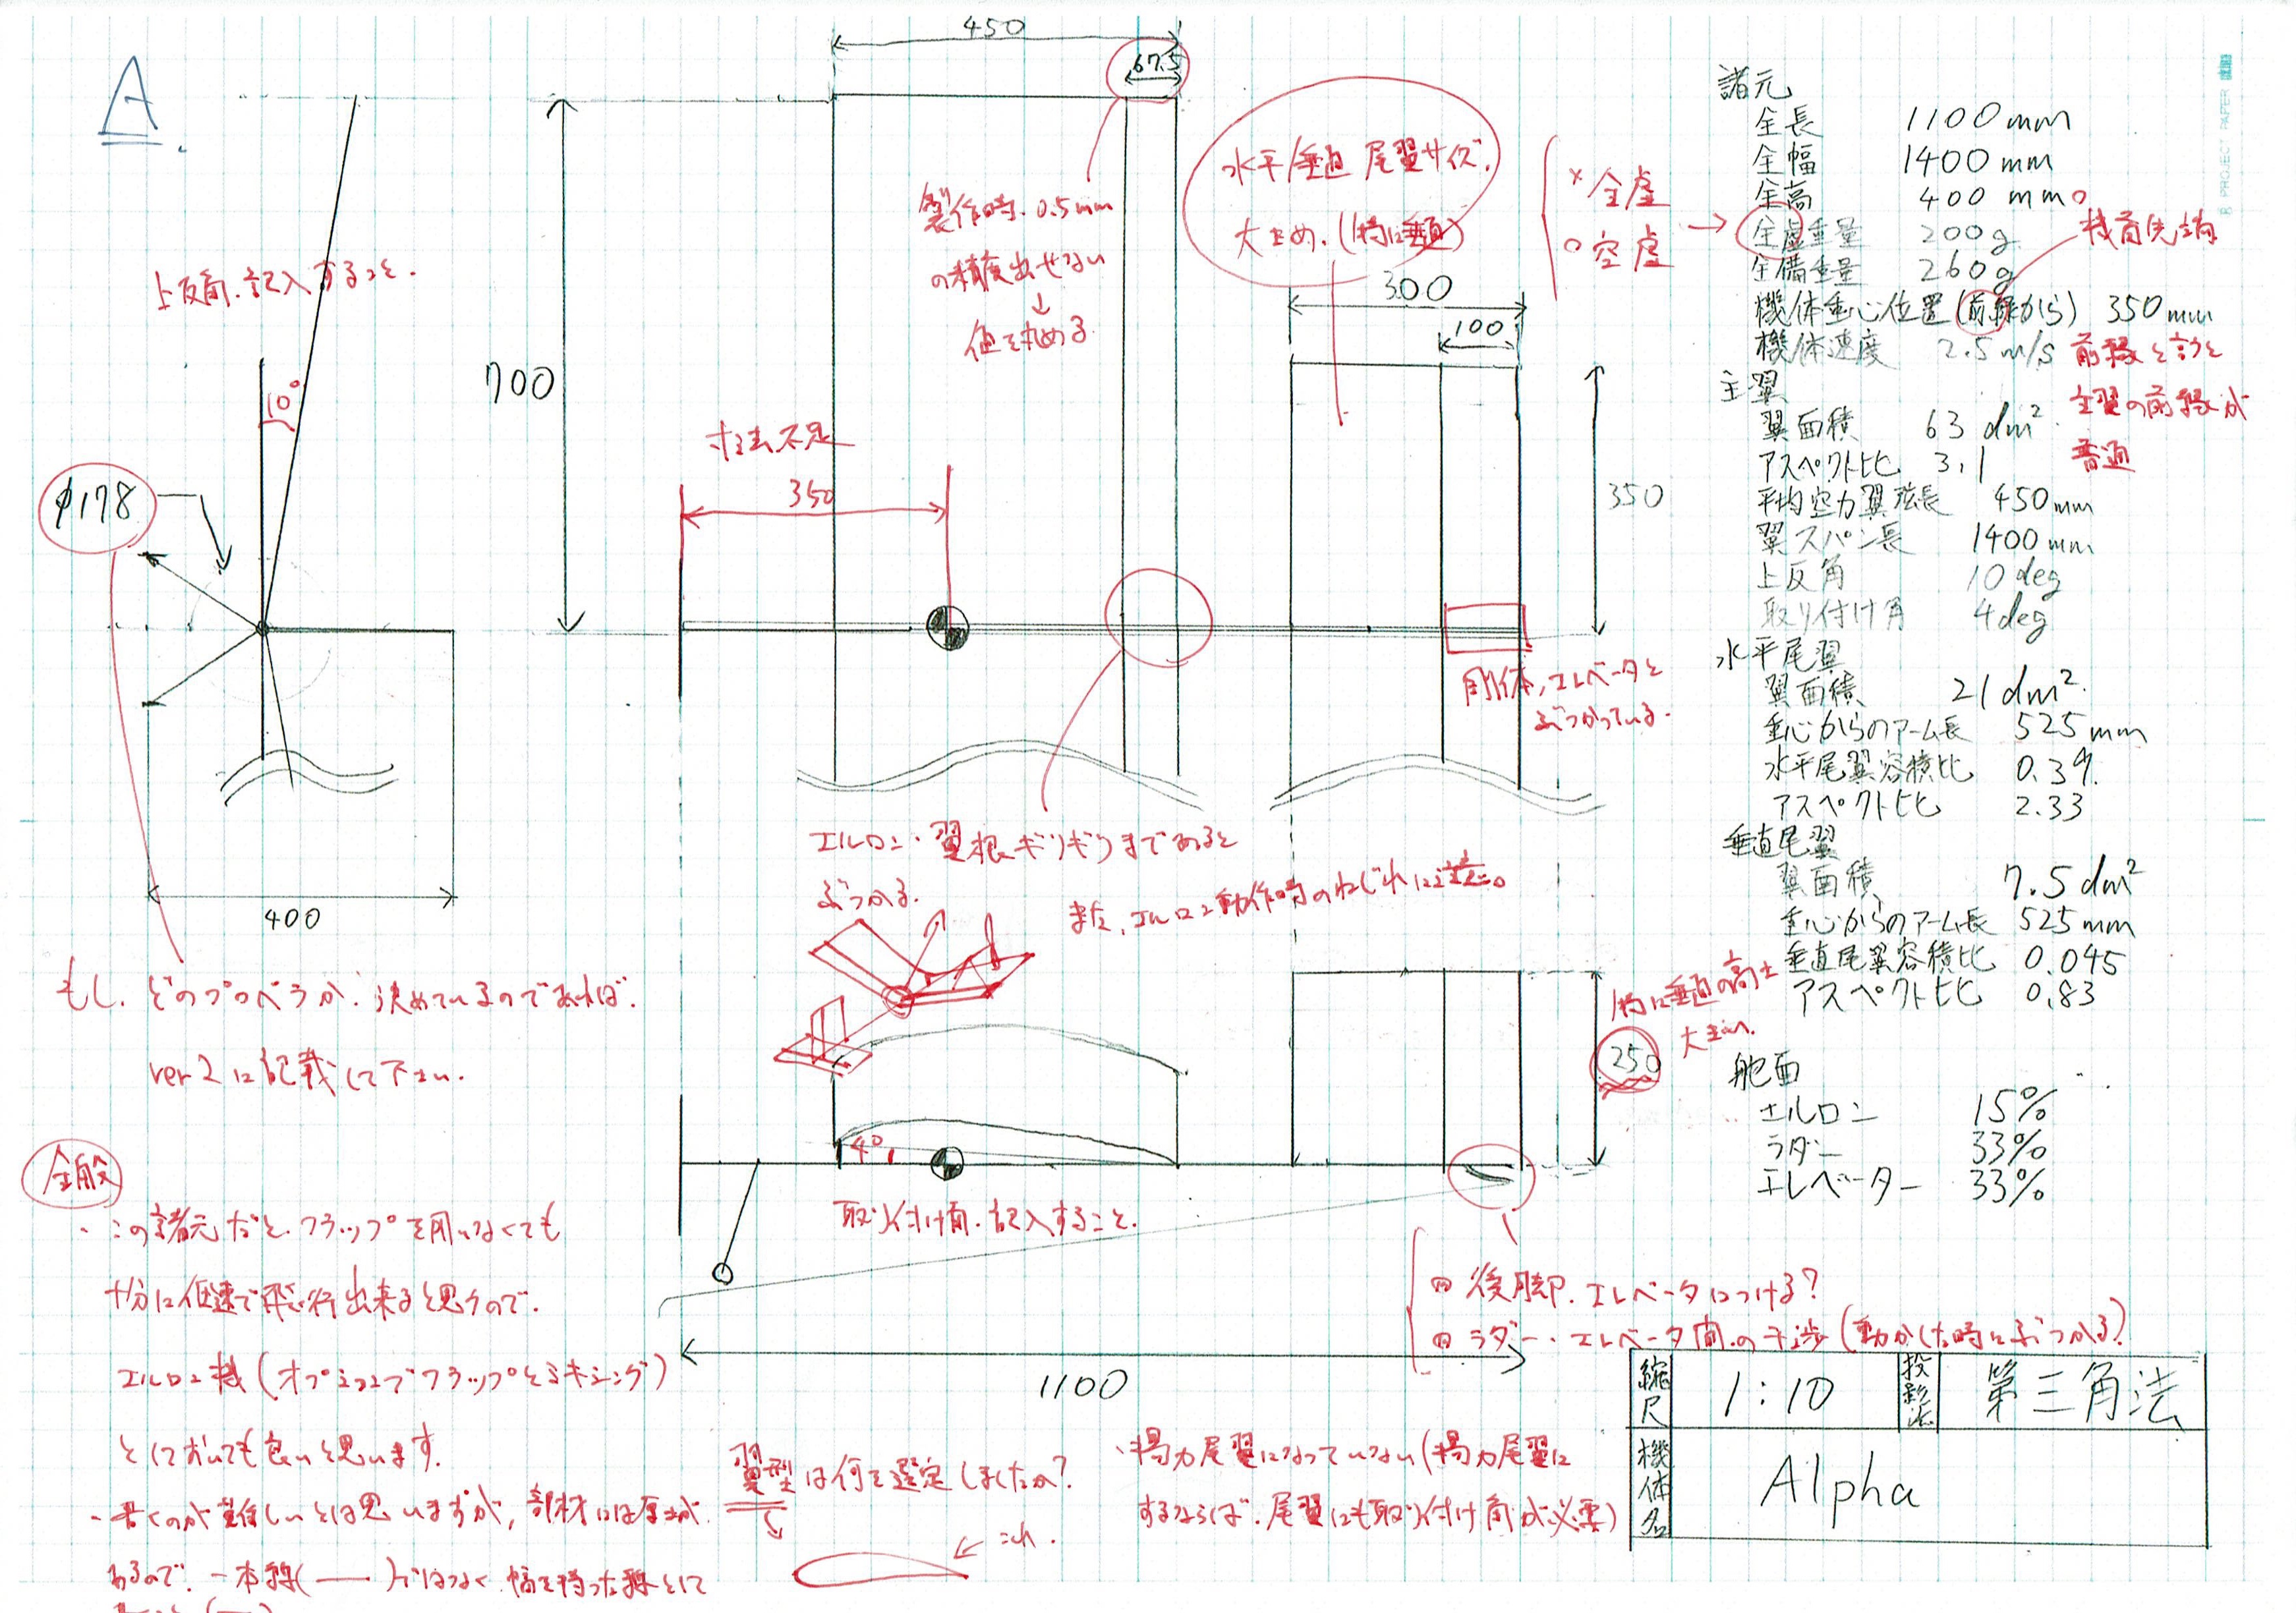 A.
450
67.5
700
製作時、0.5mm
の精度出せない
↓
値を丸める
水平/垂直 尾翼サイズ、
大きめ。(特に垂直)
× 全虚
○ 空虚
300
100
350
上反角、記入すること。
10°
φ178
寸法不足
350
剛体、エレベータと
ぶつかっている。
400
エルロン、翼根ギリギリまであると
ぶつかる。
また、エルロン動作時のねじれに注意。
もし、どのプロペラか、決めているのであれば、
ver2に記載して下さい。
特に垂直の高さ
大きい。
250
4°
取り付け角、記入すること。
後脚、エレベータにつける?
ラダー・エレベータ間の干渉(動かした時にぶつかる?)
1100
全般
・この諸元だと、フラップを用いなくても
十分に低速で飛行出来ると思うので、
エルロン機(オプションでフラップとミキシング)
としておいても良いと思います。
・書くのが難しいとは思いますが、部材には厚さが
あるので、一本線(―)ではなく、幅を持った線として
翼型は何を選定しましたか?
これ。
・揚力尾翼になっていない(揚力尾翼に
するならば、尾翼にも取り付け角が必要)
諸元
全長 1100mm
全幅 1400mm
全高 400mm
全虚重量 200g
全備重量 260g
機体重心位置(前縁から) 350mm
機体速度 2.5m/s
機首先端
前縁と言うと
主翼の前縁が
普通
主翼
翼面積 63dm²
アスペクト比 3.1
平均空力翼弦長 450mm
翼スパン長 1400mm
上反角 10deg
取り付け角 4deg
水平尾翼
翼面積 21dm²
重心からのアーム長 525mm
水平尾翼容積比 0.39
アスペクト比 2.33
垂直尾翼
翼面積 7.5dm²
重心からのアーム長 525mm
垂直尾翼容積比 0.045
アスペクト比 0.83
舵面
エルロン 15%
ラダー 33%
エレベーター 33%
縮尺 1:10 投影法 第三角法
機体名 Alpha
PROJECT PAPER